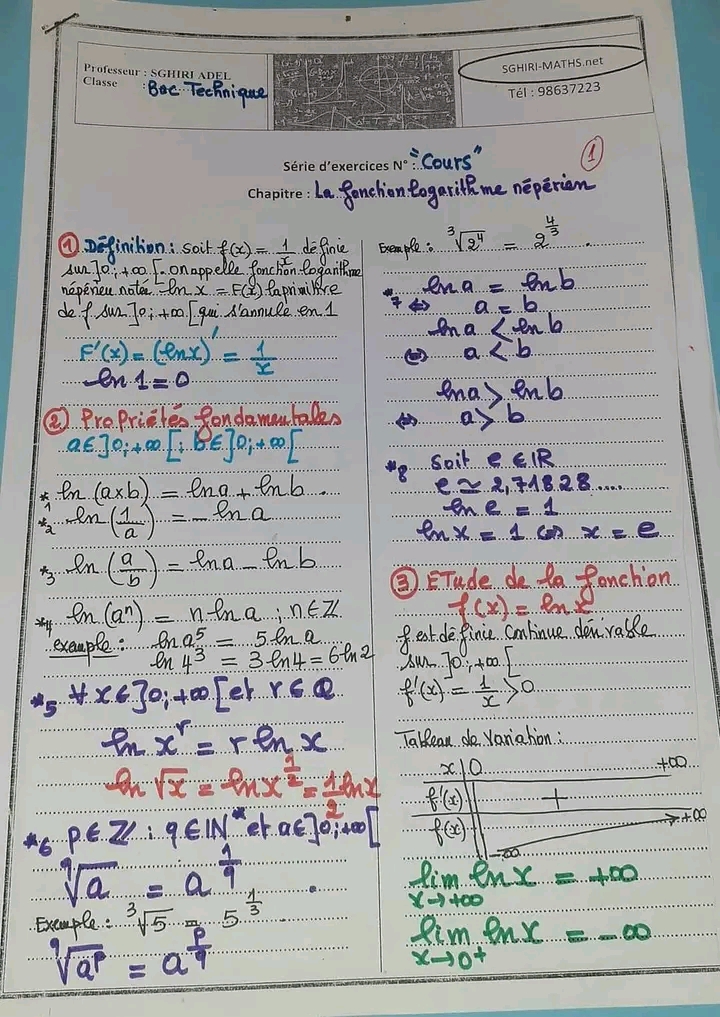 Professeur : SGHIRI ADEL
Classe : Bac Technique
SGHIRI-MATHS.net
Tél : 98637223
Série d'exercices N° : "Cours"
1
Chapitre : La fonction logarithme népérien
① Définition : soit f(x) = 1/x définie
sur ]0;+∞[. on appelle fonction logarithme
népérien notée ln x = F(x) la primitive
de f sur ]0;+∞[ qui s'annule en 1
F'(x) = (ln x)' = 1/x
ln 1 = 0
② Propriétés fondamentales
a∈]0;+∞[ ; b∈]0;+∞[
*1 ln (a×b) = ln a + ln b .
*2 ln (1/a) = - ln a
*3 ln (a/b) = ln a - ln b
*4 ln (aⁿ) = n ln a ; n∈ℤ
exemple : ln a⁵ = 5 ln a
ln 4³ = 3 ln 4 = 6 ln 2
*5 ∀x∈]0;+∞[ et r∈ℚ
ln xʳ = r ln x
ln √x = ln x^(1/2) = 1/2 ln x
*6 p∈ℤ ; q∈IN* et a∈]0;+∞[
q√a = a^(1/q) .
Exemple : ³√5 = 5^(1/3) .
q√(a^p) = a^(p/q)
Exemple : ³√(2⁴) = 2^(4/3) .
*7 ln a = ln b
⇔ a = b
ln a < ln b
⇔ a < b
ln a > ln b
⇔ a > b
*8 Soit e ∈ IR
e ≃ 2,71828....
ln e = 1
ln x = 1 ⇔ x = e
③ ETude de la fonction
f(x) = ln x
f est définie continue dérivable
sur ]0;+∞[
f'(x) = 1/x > 0
Tableau de variation :
x 0 +∞
f'(x) +
f(x) -∞ +∞
lim ln x = +∞
x→+∞
lim ln x = -∞
x→0⁺